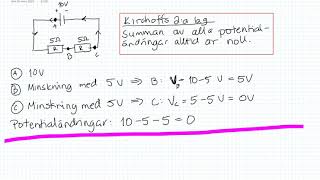 10V
A
+ -
I
5Ω
5Ω
R
R
B
C
Kirchoffs 2:a lag
Summan av alla potential-
ändringar alltid är noll.
A 10V
B Minskning med 5V ⇒ B: V_B = 10-5V = 5V
C Minskning med 5V ⇒ C: V_C = 5-5V = 0V
Potentialändringar: 10-5-5=0